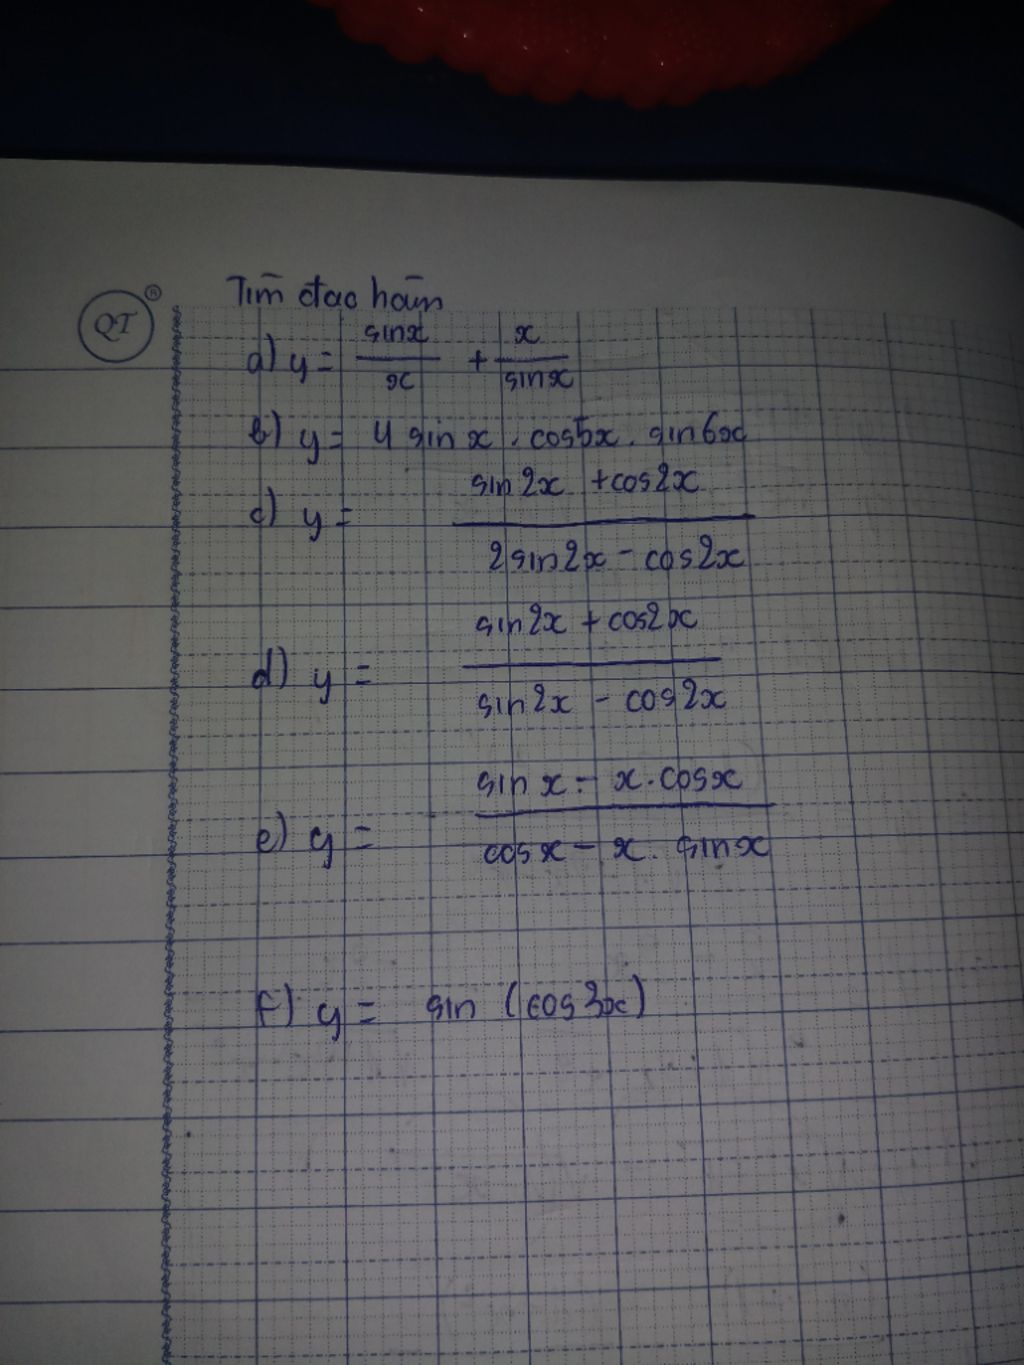 QT ®
Tìm đạo hàm
a) y = sinx/x + x/sinx
b) y = 4 sin x . cos5x . sin6x
c) y = sin2x + cos2x / 2sin2x - cos2x
d) y = sin2x + cos2x / sin2x - cos2x
e) y = sin x - x.cosx / cosx - x. sinx
f) y = sin (cos3x)